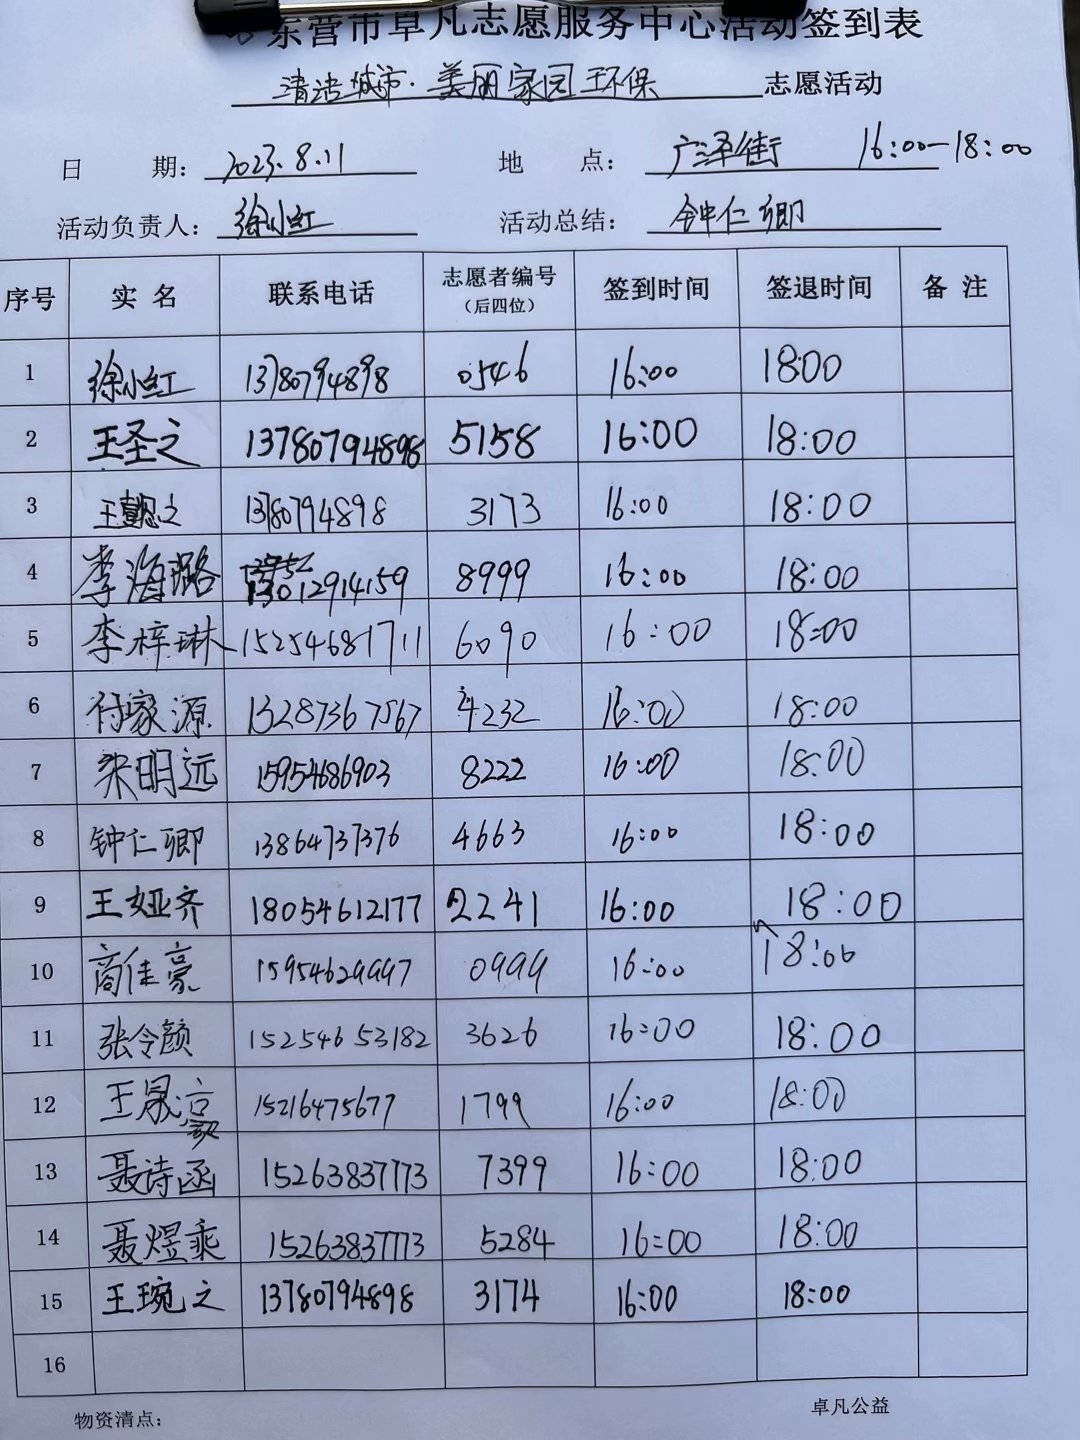 东营市卓凡志愿服务中心活动签到表
清洁城市·美丽家园 环保 志愿活动
日 期: 2023.8.11 地 点: 广泽街 16:00-18:00
活动负责人: 徐小红 活动总结: 钟仁卿
序号 实名 联系电话 志愿者编号(后四位) 签到时间 签退时间 备注
1 徐小红 13780794898 0546 16:00 18:00
2 王圣之 13780794898 5158 16:00 18:00
3 王懿之 13780794898 3173 16:00 18:00
4 李海璐 13012914159 8999 16:00 18:00
5 李梓琳 15254681711 6090 16:00 18:00
6 付家源 13287367567 4232 16:00 18:00
7 梁明远 15954686903 8222 16:00 18:00
8 钟仁卿 13864737376 4663 16:00 18:00
9 王娅齐 18054612177 2241 16:00 18:00
10 商佳豪 15954629997 0999 16:00 18:00
11 张令颜 15254653182 3626 16:00 18:00
12 王晟 15216475677 1799 16:00 18:00
13 聂诗函 15263837773 7399 16:00 18:00
14 聂煜乘 15263837773 5284 16:00 18:00
15 王琬之 13780794898 3174 16:00 18:00
16
物资清点: 卓凡公益